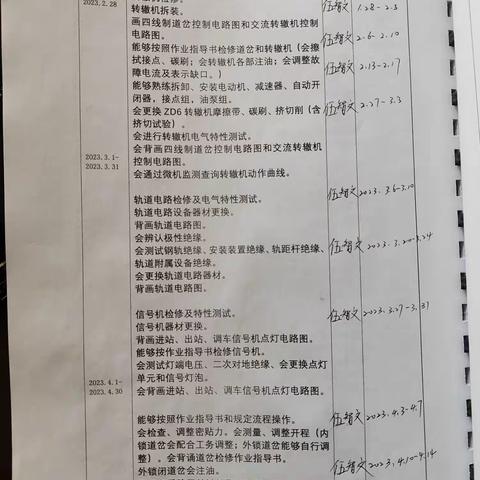 2023.2.28
转辙机拆装。
伍智文 1.28-2.3
画四线制道岔控制电路图和交流转辙机控制
电路图。
伍智文 2.6-2.10
能够按照作业指导书检修道岔和转辙机（会擦
拭接点、碳刷；会转辙机各部注油；会调整故
障电流及表示缺口。）
伍智文 2.13-2.17
能够熟练拆卸、安装电动机、减速器、自动开
闭器，接点组，油泵组。
会更换 ZD6 转辙机摩擦带、碳刷、挤切削（含
挤切试验）。
伍智文 2.27-3.3
会进行转辙机电气特性测试。
会背画四线制道岔控制电路图和交流转辙机
控制电路图。
2023.3.1-
2023.3.31
会通过微机监测查询转辙机动作曲线。
轨道电路检修及电气特性测试。
伍智文 2023.3.6-3.10
轨道电路设备器材更换。
背画轨道电路图。
会辨认极性绝缘。
会测试钢轨绝缘、安装装置绝缘、轨距杆绝缘、
轨道附属设备绝缘。
伍智文 2023.3.20-3.24
会更换轨道电路器材。
背画轨道电路图。
信号机检修及特性测试。
伍智文 2023.3.27-3.31
信号机器材更换。
背画进站、出站、调车信号机点灯电路图。
能够按作业指导书检修信号机。
会测试灯端电压、二次对地绝缘、会更换点灯
单元和信号灯泡。
2023.4.1-
2023.4.30
会背画进站、出站、调车信号机点灯电路图。
能够按照作业指导书和规定流程操作。
伍智文 2023.4.3-4.7
会检查、调整密贴力。会测量、调整开程（内
锁道岔会配合工务调整；外锁道岔能够自行调
整）。会背诵道岔检修作业指导书。
外锁闭道岔会注油。
伍智文 2023.4.10-4.14